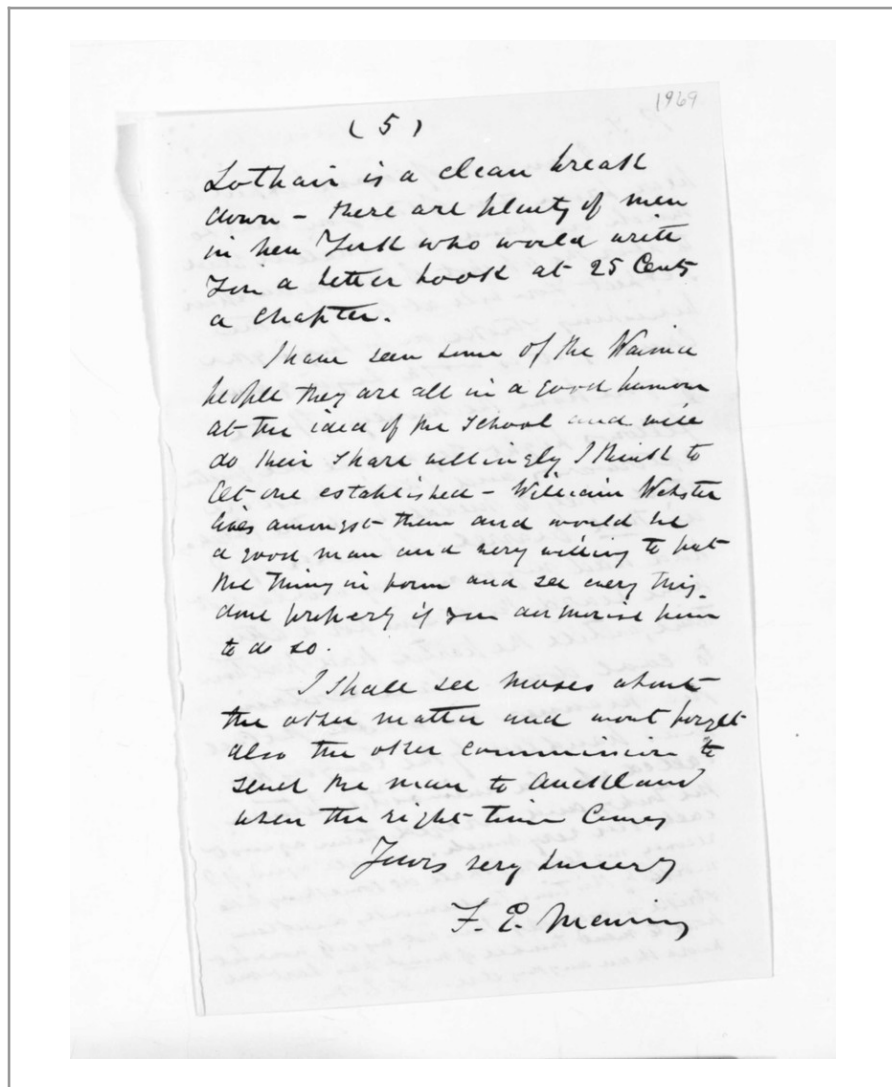 1969
(5)
Lothair is a clean break
down - there are plenty of men
in new York who would write
You a better book at 25 Cents
a Chapter.
I have seen some of the Waima
people they are all in a good humour
at the idea of the School and will
do their share willingly I think to
Get one established - William Webster
lives amongst them and would be
a good man and very willing to put
the thing in form and see every thing
done properly if you authorise him
to do so.
I Shall see Moses about
the other matter and wont forget
also the other commission to
send the man to Auckland
when the right time Comes
Yours very sincerely
F. E. Maning